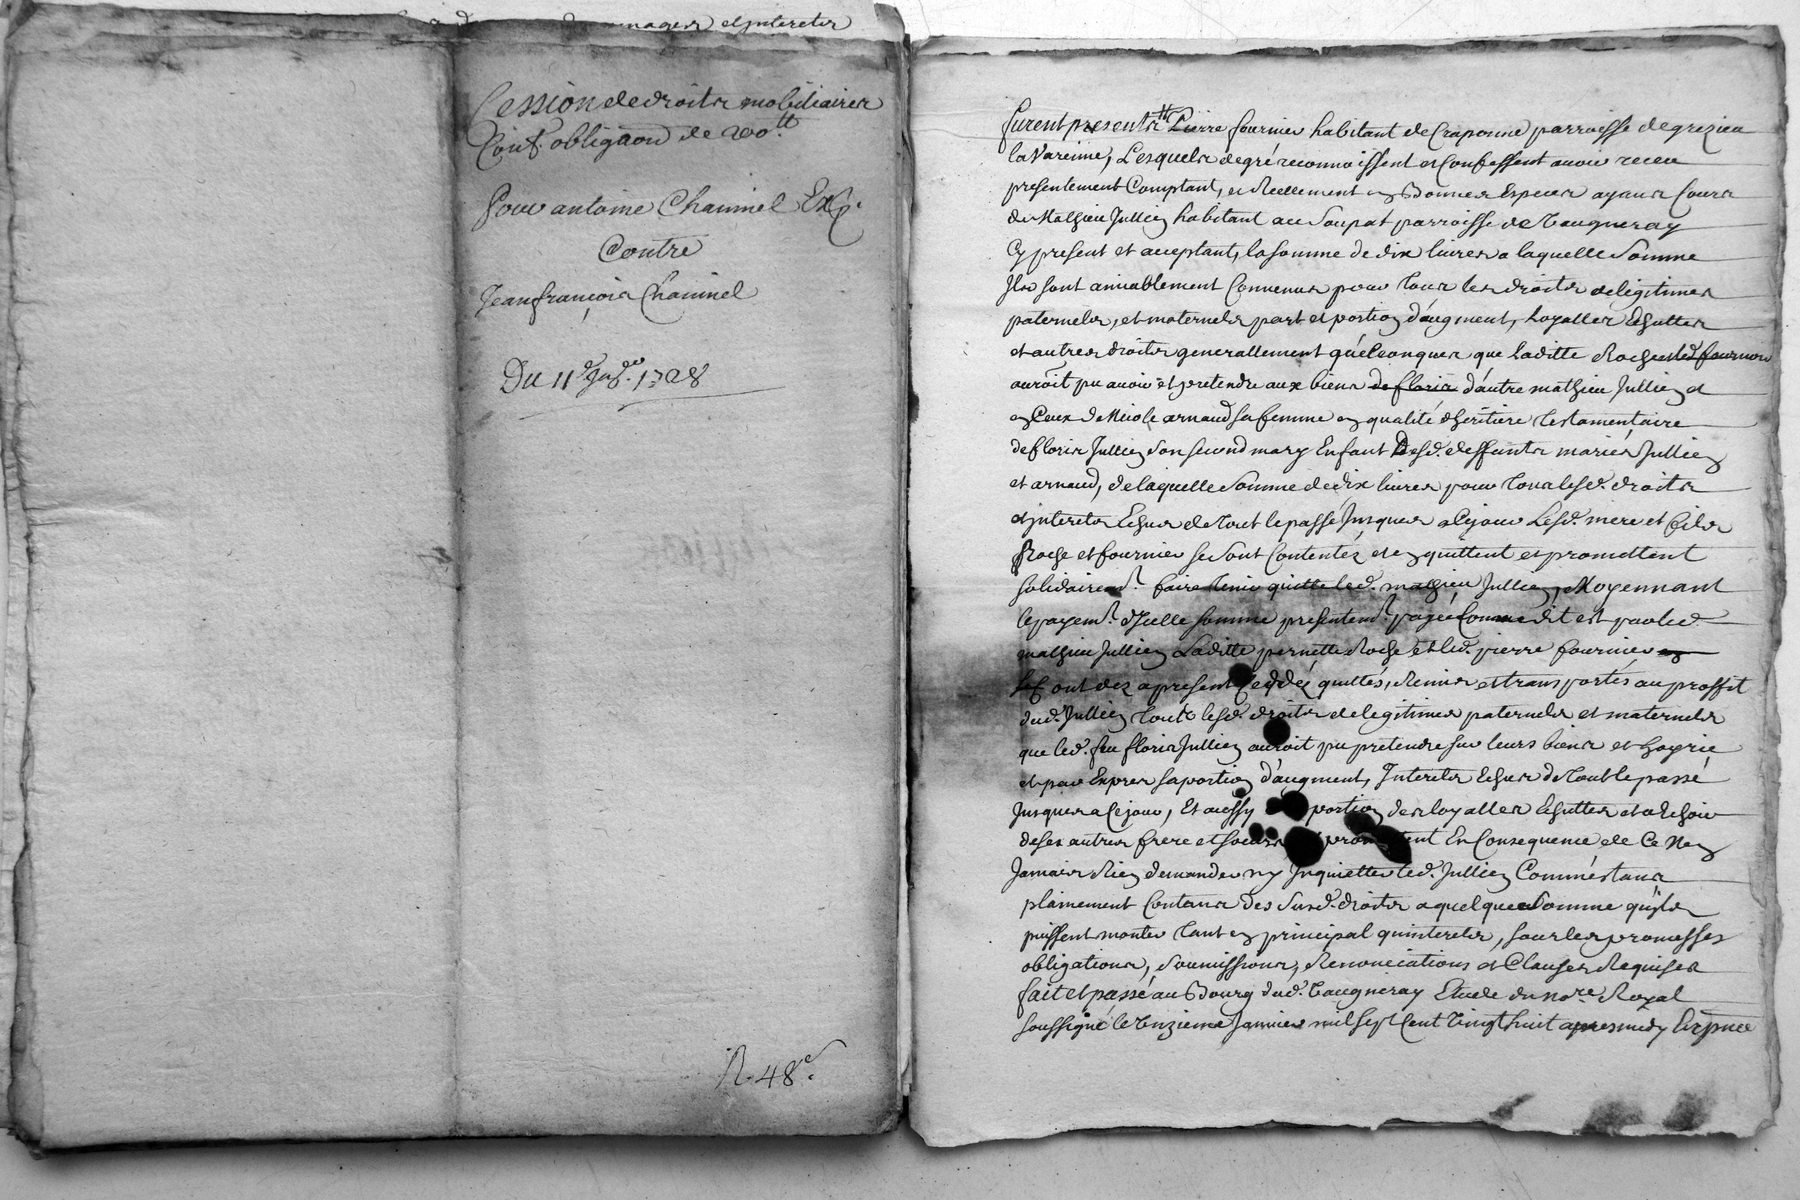 mages et interets
Cession de droits mobiliaires
Cont. obliga͠on de 200.ₗₜ
Pour antoine Chaminel Exp.
Contre
Jean françois Chaminel
Du 11e Janv.er 1728
R. 48e.
furent presents Pierre fournier habitant de Craponne parroisse de grezieu
la Varenne, Lesquels de gré reconnoissent et Confessent avoir receu
presentement Comptant, et Reellement en Bonnes Especes ayans Cours
de Mathieu Jullien habitant au Soupat parroisse de Vaugneray
Cy present et acceptant, la somme de dix livres a laquelle Somme
Ils sont amiablement Convenus pour tous les droits de legitimes
paternels, et maternels part et portion d'augment, hoyalles Echuttes
et autres droits generallement quélconques que Laditte Roche et led. fournier
auroit pu avoir et pretendre aux biens de floris d'autre mathieu Jullien et
en Ceux de Nicole arnaud sa femme en qualité d'heritiere testamentaire
de floris Jullien son second mary Enfant desd. deffunts mariés Jullien
et arnaud, de laquelle Somme de dix livres pour tous lesd. droits
et interets Echus de tout le passé Jusques a Cejour Lesd. mere et fils
Roche et fournier se sont Contentés et en quittent et promettent
solidairemt. faire tenir quitte led. mathieu Jullien, Moyennant
le payemt. d'icelle somme presentemt. payée Comme dit est par led.
mathieu Jullien Laditte pernette Roche et led. pierre fournier
ont dez a present Ceddéz quittés, Remis et transportés au proffit
dud. Jullien tout lesd. droits de legitimes paternels et maternels
que led. feu floris Jullien auroit pu pretendre sur leurs biens et hoyrie
et par Exprés sa portion d'augment, Interets Echus de tout le passé
Jusques a Cejour, Et aussy portion des hoyalles Echuttes
de ses autres frere et soeurs En Consequence de Ce Ne
Jamais Rien demander ny Inquietter led. Jullien Comme estans
plainement Contans des Susd. droits a quelque Somme qu'ils
puissent monter tant en principal qu'interets, sous les promesses
obligations, soumissions, Renonciations et Clauses Requises
fait et passé au Bourg dud. Vaugneray Etude du nore. Royal
soussigné le onzieme Janvier mil sept Cent vingt huit apres midy